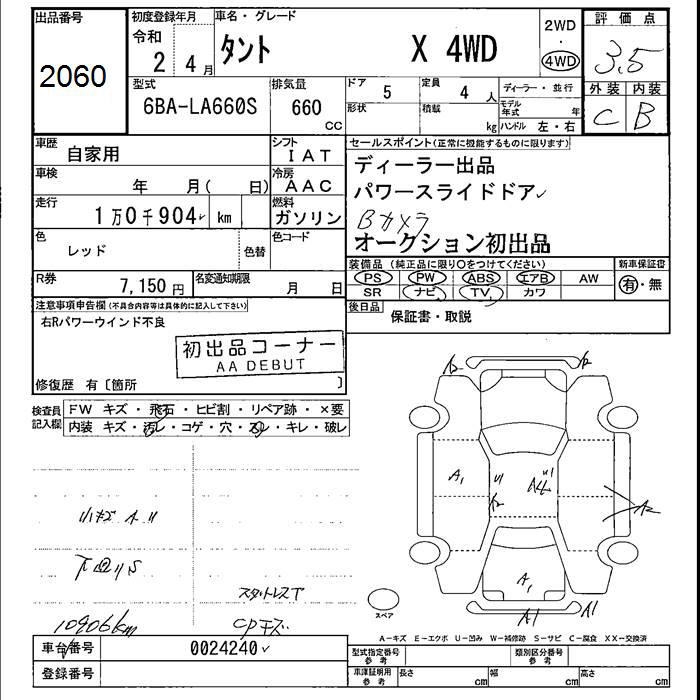 出品番号
2060
初度登録年月
令和
2 4月
車名・グレード
タント X 4WD
2WD
・
4WD
評価点
3.5
外装 内装
C B
型式
6BA-LA660S
排気量
660 CC
ドア
5
形状
定員
4 人
積載
kg
ディーラー・並行
モデル年式 年
ハンドル 左・右
車歴
自家用
シフト
IAT
車検
年 月( 日)
冷房
AAC
走行
1万0千904 km
燃料
ガソリン
色
レッド
色替
色コード
R券
7,150円
名変通知期限
月 日
セールスポイント(正常に機能するものに限ります)
ディーラー出品
パワースライドドア
Bカメラ
オークション初出品
装備品(純正品に限り〇をつけてください)
PS PW ABS エアB AW
SR ナビ TV カワ
新車保証書
有・無
後日品
保証書・取説
注意事項申告欄(不具合内容等は具体的に記入して下さい)
右Rパワーウインド不良
初出品コーナー
AA DEBUT
修復歴 有〔箇所 〕
検査員記入欄
FW キズ・飛石・ヒビ割・リペア跡・×要
内装 キズ・汚レ・コゲ・穴・スレ・キレ・破レ
A1
A4
A2
A1
A1
A1
小キズ A
下回りS
スタットレスT
10906km
CPキズ
スペア
A-キズ E-エクボ U-凹み W-補修跡 S-サビ C-腐食 XX-交換済
車台番号
0024240
登録番号
型式指定番号
参考
類別区分番号
参考
車庫証明用
参考
長さ cm
幅 cm
高さ cm